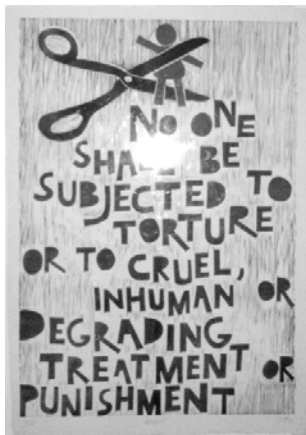 No ONE
SHALL BE
SUBJECTED TO
TORTURE
OR TO CRUEL,
INHUMAN OR
DEGRADING
TREATMENT OR
PUNISHMENT